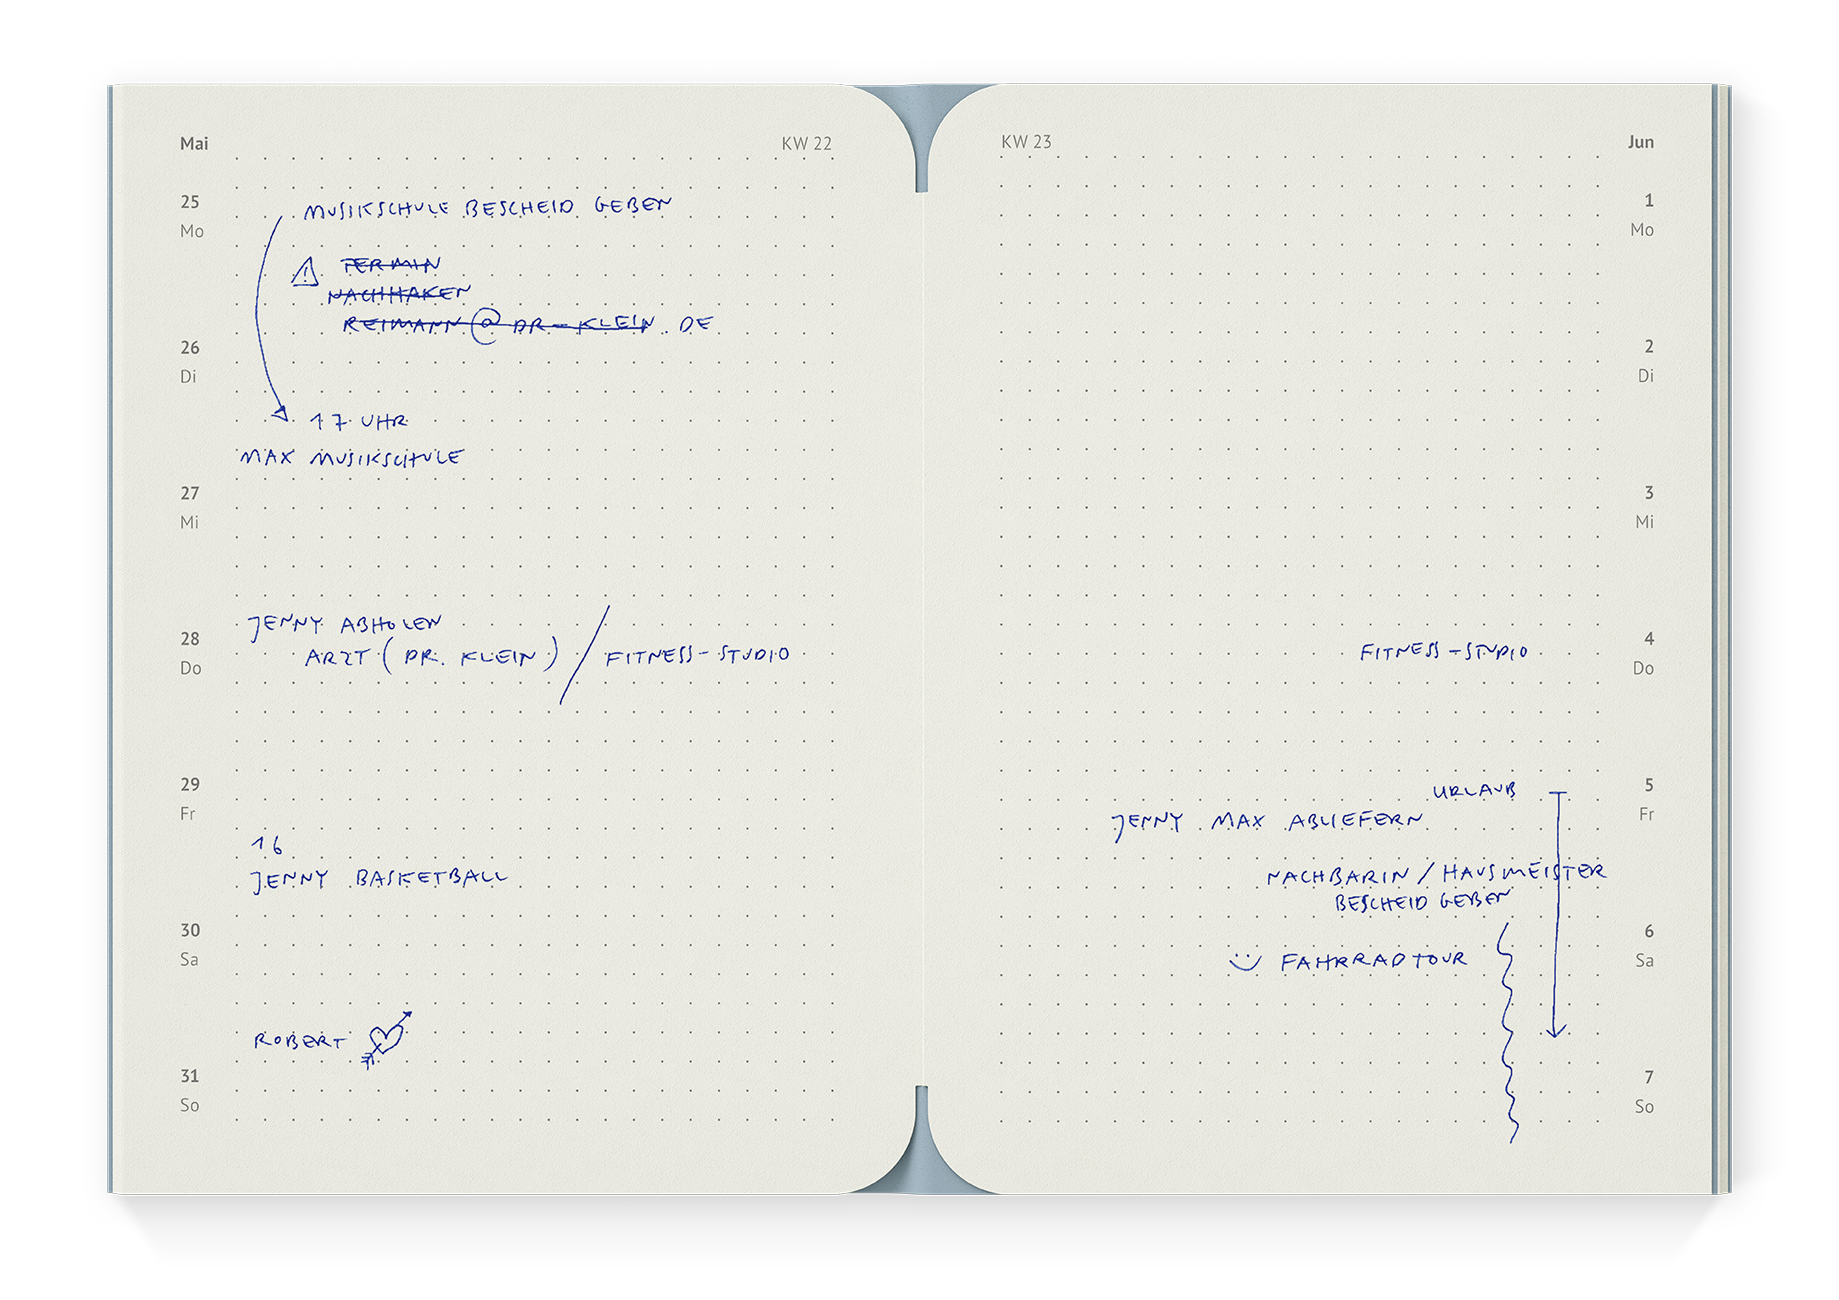 Mai KW 22
25
Mo
MUSIKSCHULE BESCHEID GEBEN
TERMIN
NACHHAKEN
REIMANN@DR-KLEIN.DE
26
Di
17 UHR
MAX MUSIKSCHULE
27
Mi
JENNY ABHOLEN
28
Do
ARZT (DR. KLEIN) / FITNESS-STUDIO
29
Fr
16
JENNY BASKETBALL
30
Sa
ROBERT
31
So
KW 23 Jun
1
Mo
2
Di
3
Mi
4
Do
FITNESS-STUDIO
5
Fr
URLAUB
JENNY MAX ABLIEFERN
NACHBARIN / HAUSMEISTER
BESCHEID GEBEN
6
Sa
FAHRRADTOUR
7
So